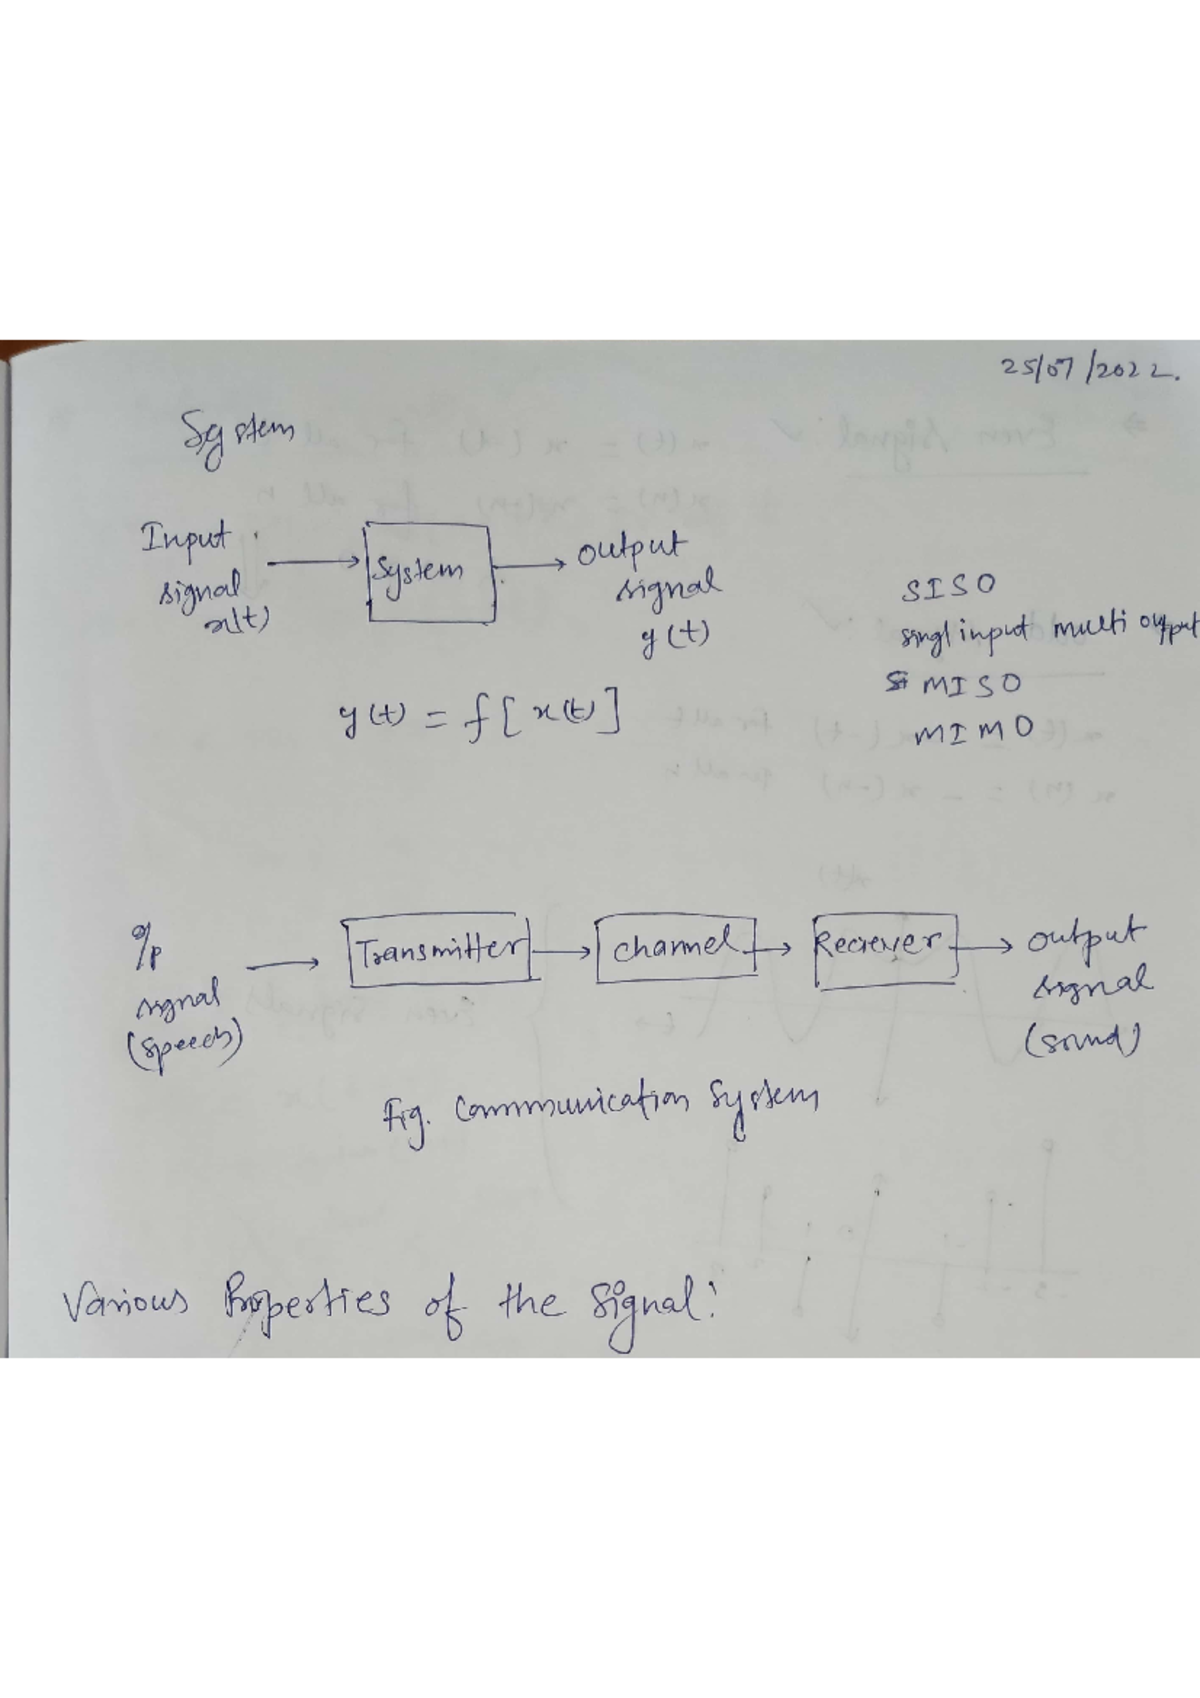 25/07/2022.
System
Input
signal
x(t)
System
output
signal
y(t)
SISO
singl input multi output
MISO
MIMO
y(t) = f[x(t)]
i/p
signal
(speech)
Transmitter
channel
Reciever
output
signal
(sound)
Fig. Communication System
Various Properties of the Signal: